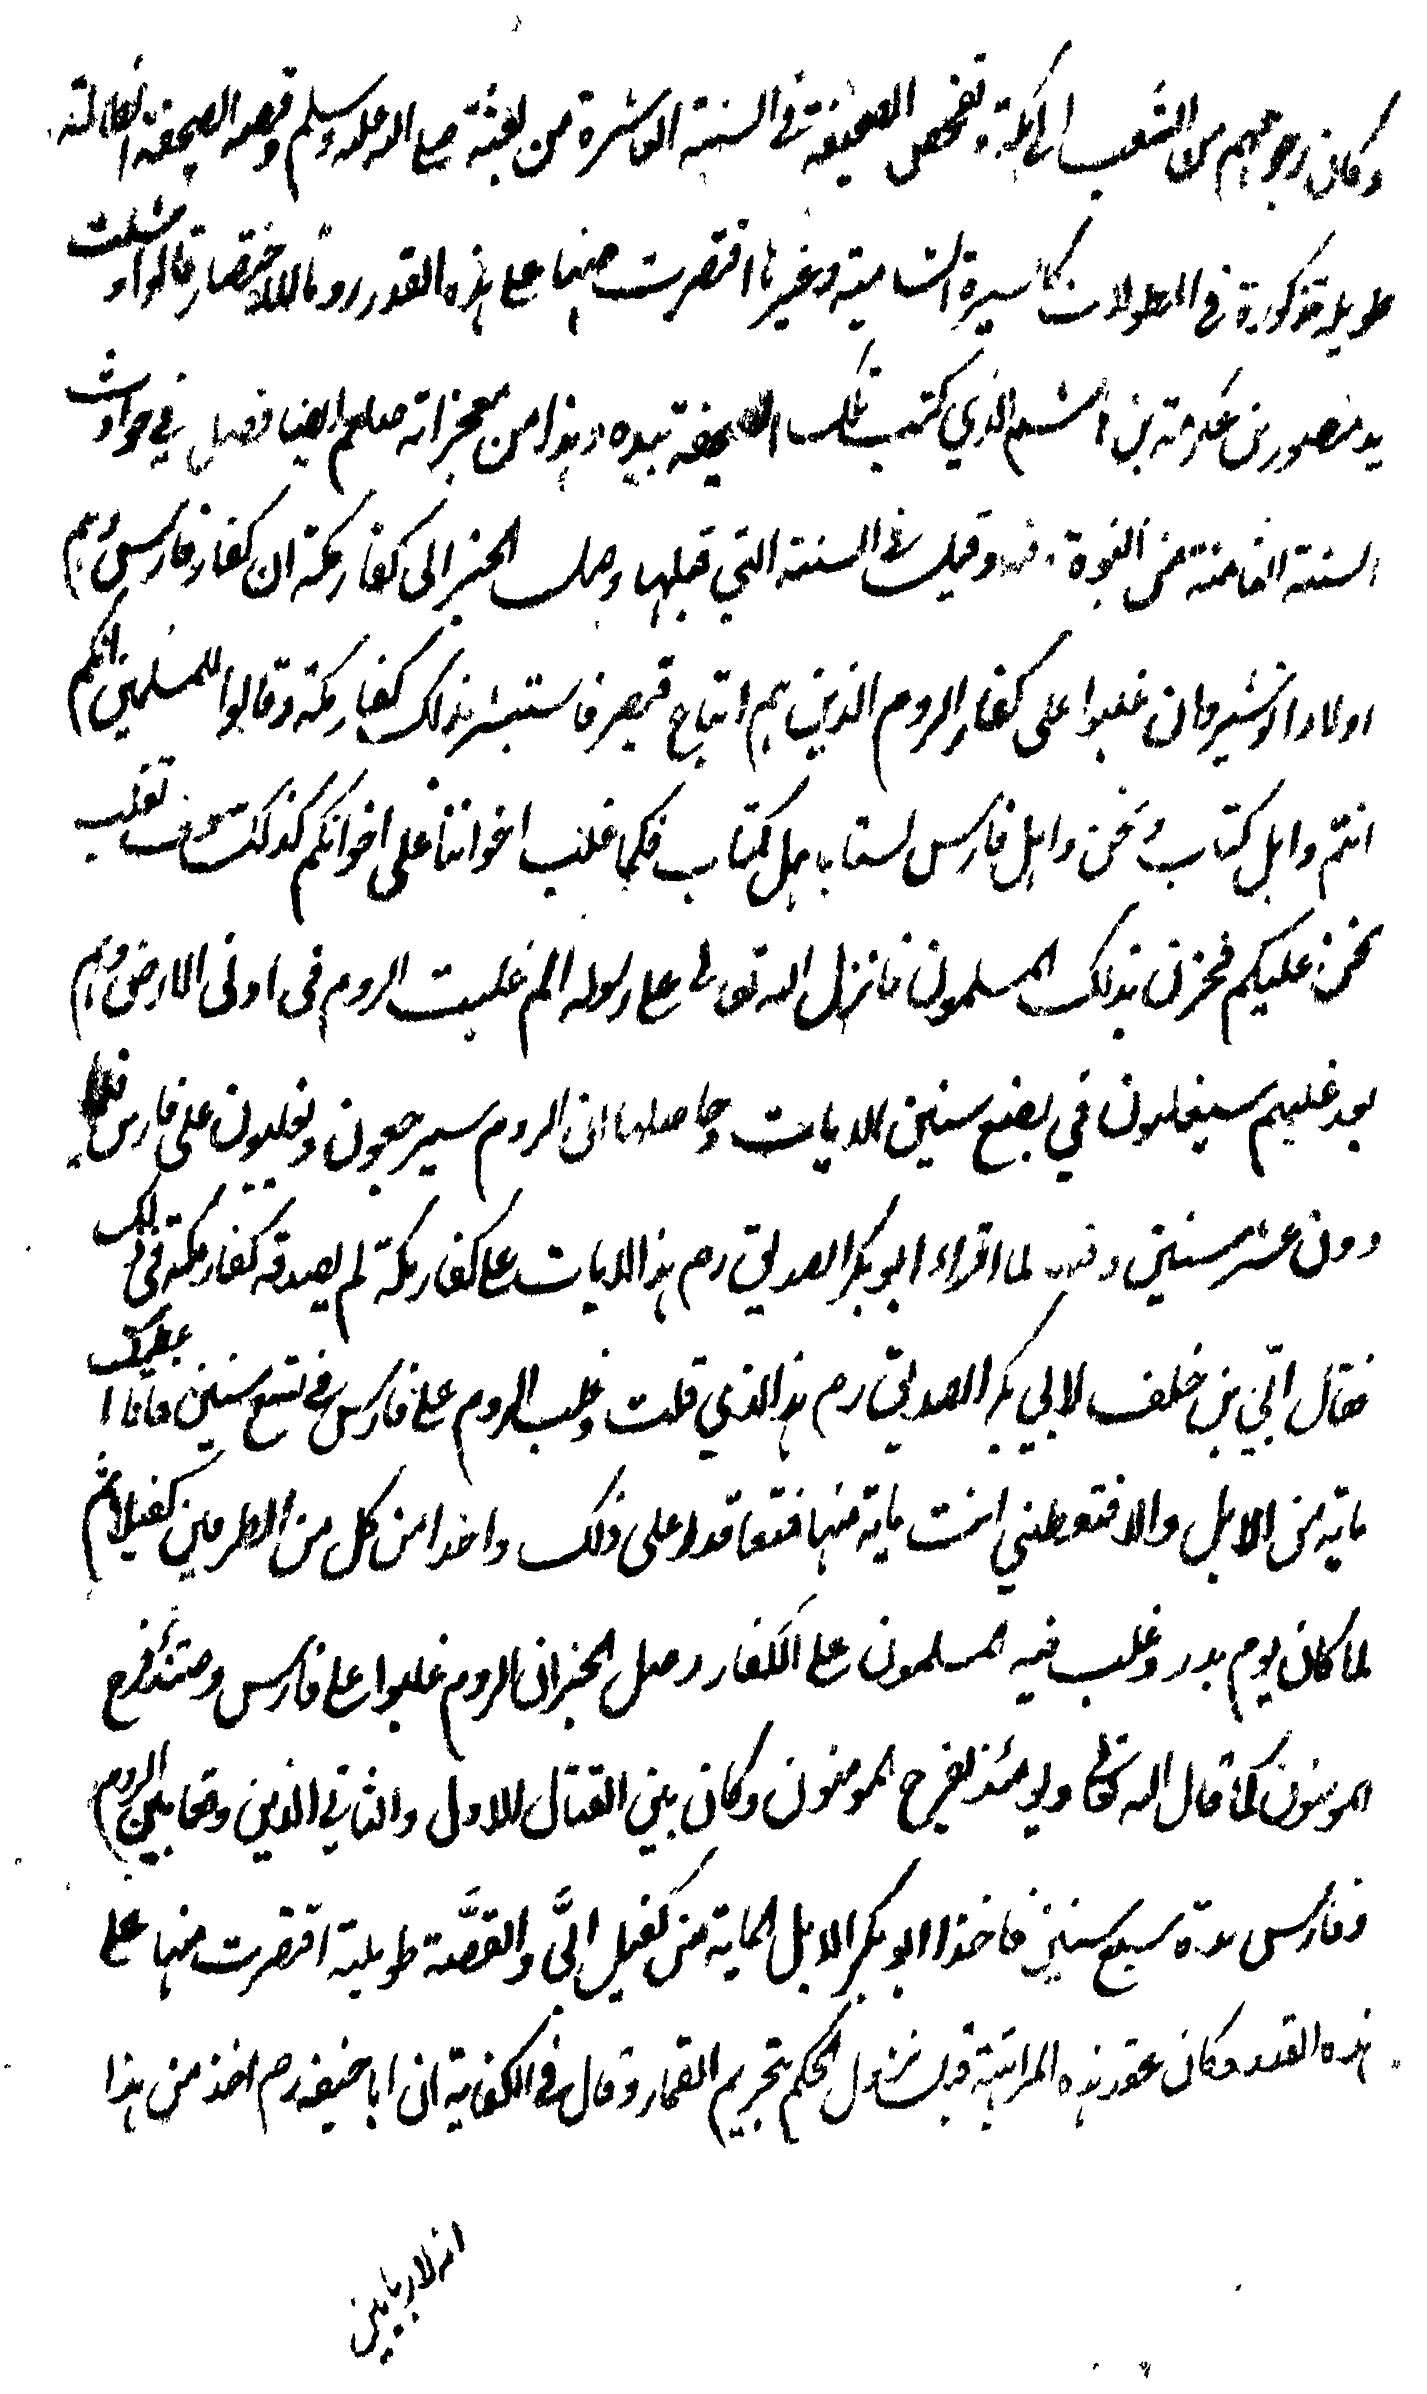 وكان خروجهم من الشعب الى مكة ونقض الصحيفة في السنة العاشرة من بعثة صلى الله عليه وسلم وقصة الصحيفة الظالمة
طويلة مذكورة في المطولات كالسيرة الشامية وغيرها اقتصرت منها على هذه القدر روما للاختصار قالوا وشلت
يد منصور بن عكرمة بن هشم الذي كتب تلك الصحيفة بيده وهذا من معجزاته صلعم ايضا فصل في حوادث
السنة الثامنة من النبوة وقيل في السنة التي قبلها وصل الخبر الى كفار مكة ان كفار فارس وهم
اولاد انوشيروان غلبوا على كفار الروم الذين هم اتباع قيصر فاستبشر بذلك كفار مكة وقالوا للمسلمين انكم
انتم واهل كتاب ونحن واهل فارس لسنا باهل كتاب فكما غلب اخواننا على اخوانكم كذلك سوف نغلب
نحن عليكم فحزن بذلك المسلمون فانزل الله تعالى على رسوله الم غلبت الروم في ادنى الارض وهم
بعد غلبهم سيغلبون في بضع سنين الايات وحاصلها ان الروم سيرجعون ويغلبون على فارس فيما
دون عشر سنين وفيه لما اقراء ابو بكر الصديق رض هذا الايات على كفار مكة لم يصدقه كفار مكة في ذلك
فقال ابّي بن خلف لابي بكر الصديق رض هذا الذي قلت وغلب الروم على فارس في تسع سنين فانا اعطيك
ماية من الابل والا فتعطني انت ماية منها فتعاقدا على ذلك واخذا من كل من الطرفين كفيلا ثم
لما كان يوم بدر وغلب فيه المسلمون على الكفار وصل الخبر ان الروم غلبوا على فارس وحينئذ فرح
المومنون كما قال الله تعالى ويومئذ يفرح المومنون وكان بين القتال الاول والثاني الذين وقعا بين الروم
وفارس مدة سبع سنين فاخذا ابو بكر الابل الماية من كفيل ابىّ والقصّة طويلة اقتصرت منها على
هذه القدر وكان عقد هذه المراهنة قبل نزول الحكم بتحريم القمار وقال في الكفاية ان ابا حنيفه رح اخذ من هذا